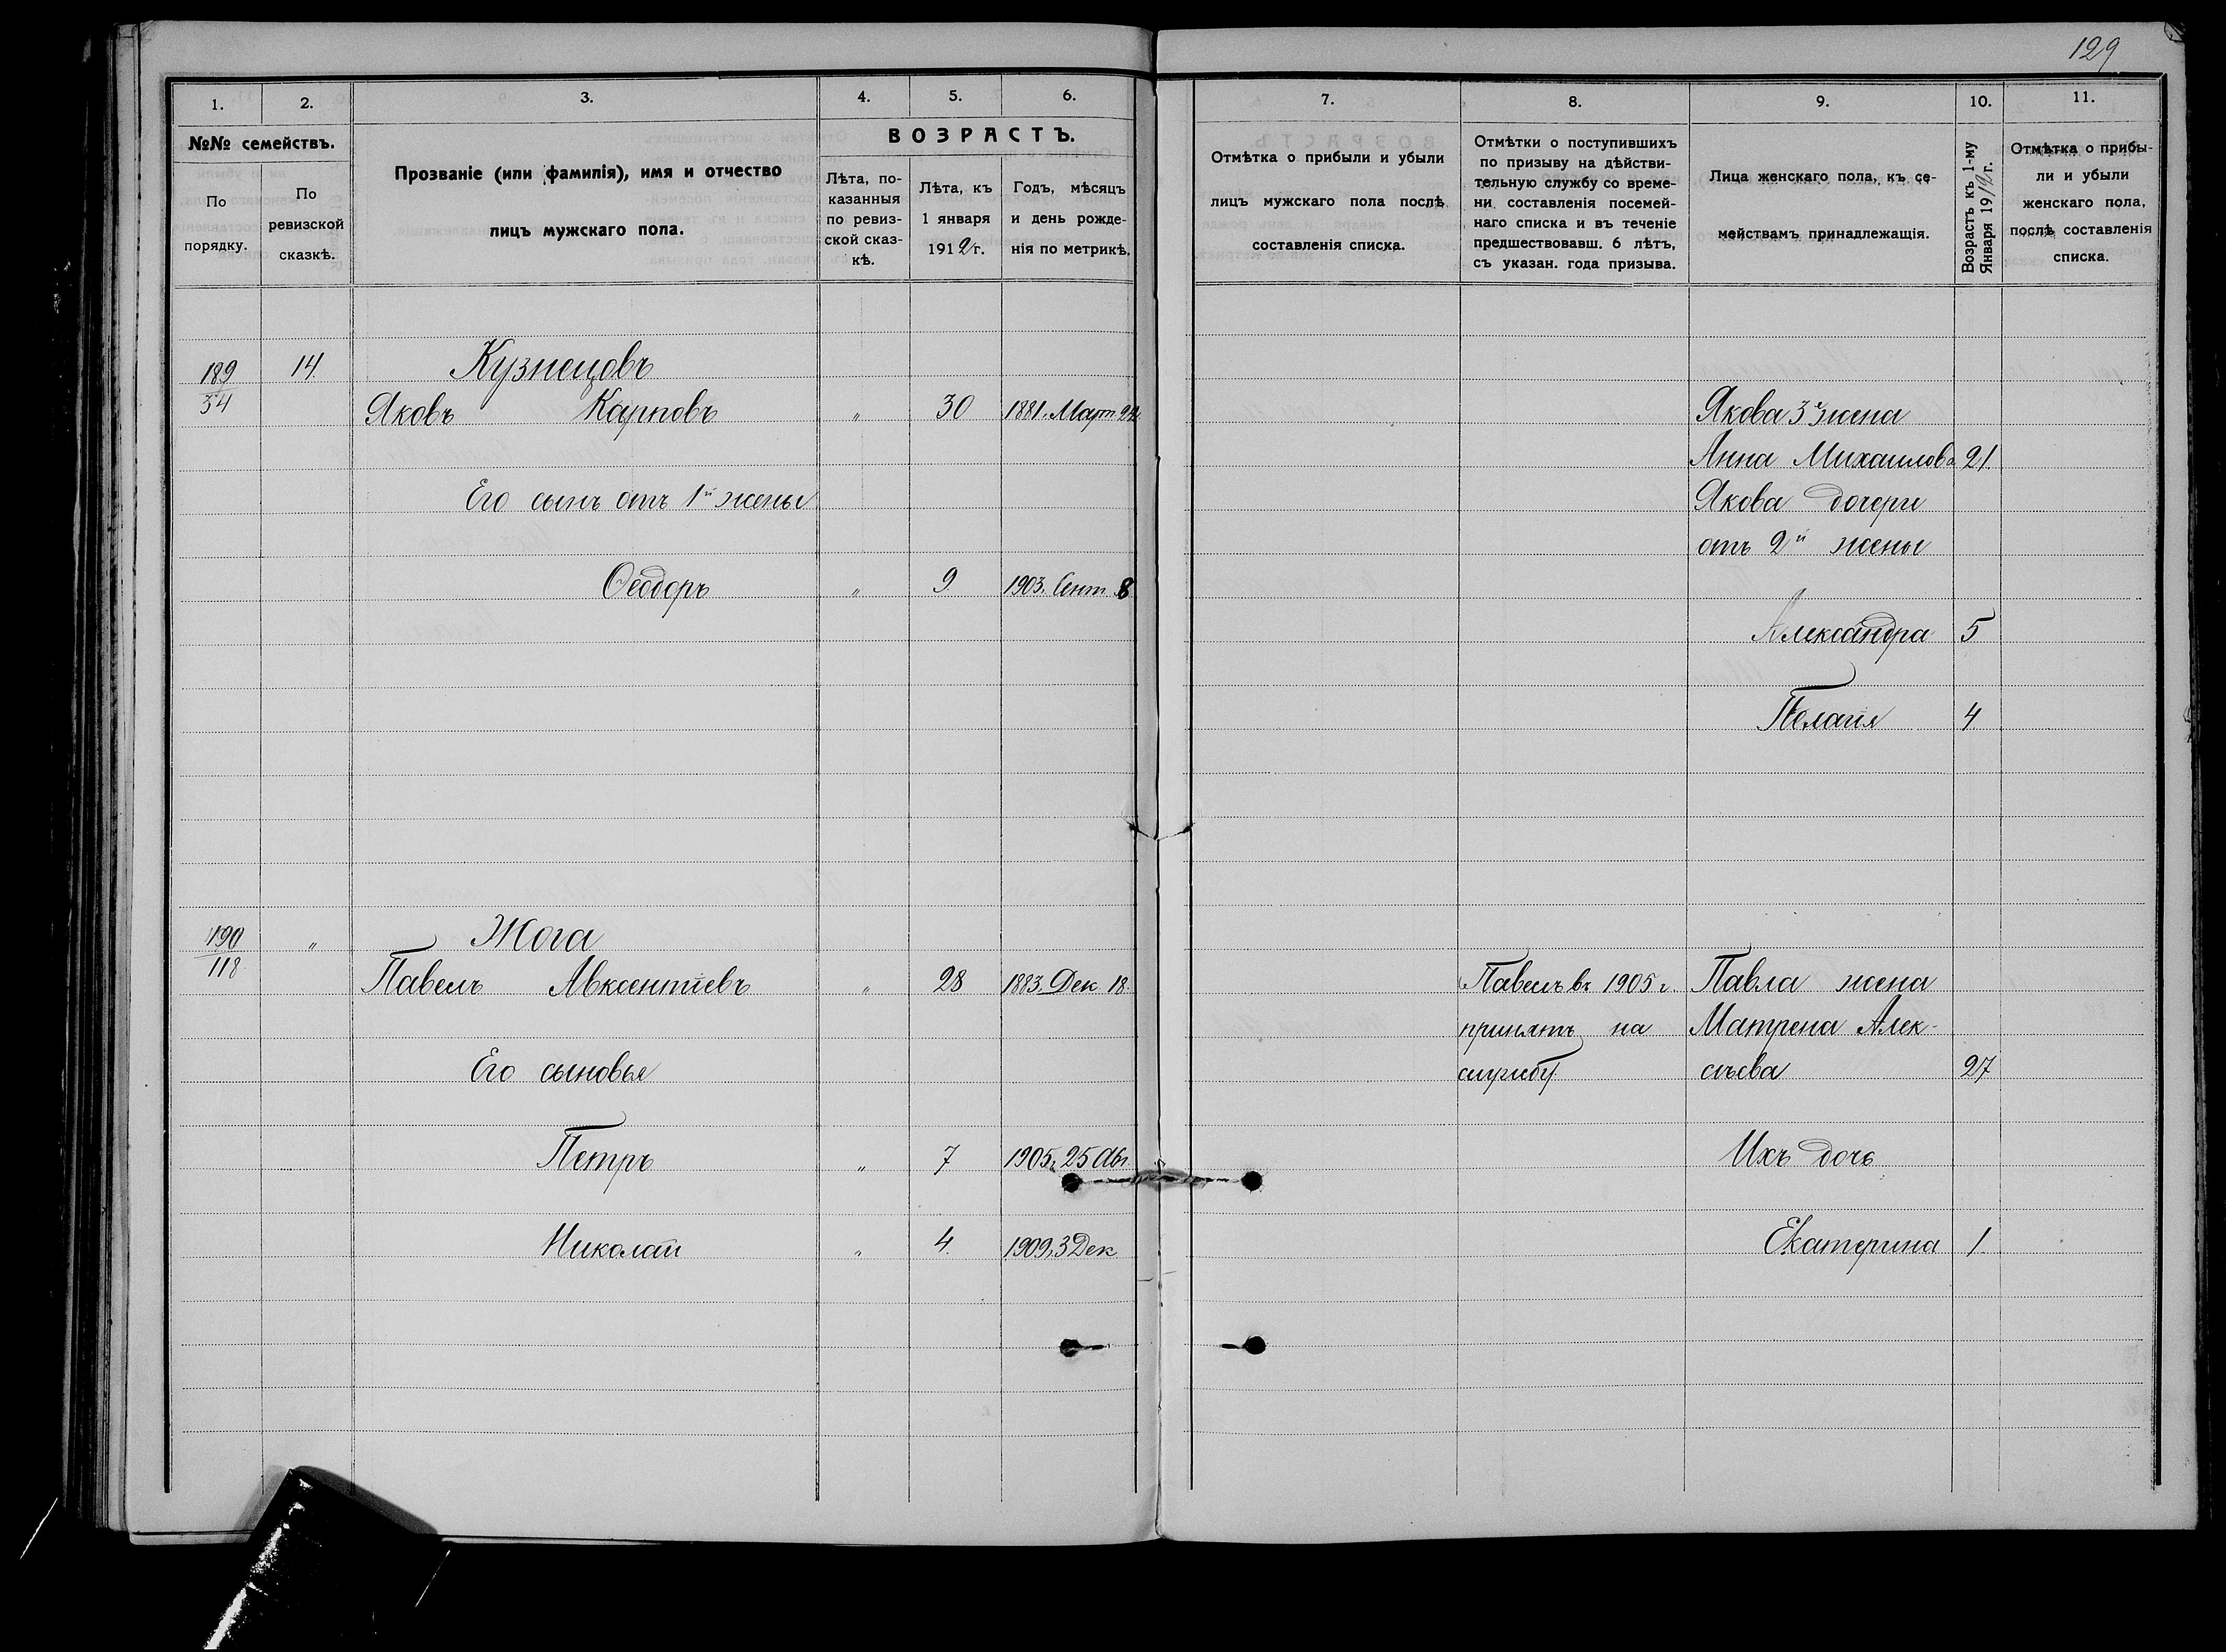 129
1. 2. 3. 4. 5. 6. 7. 8. 9. 10. 11.
№№ семействъ.
По порядку.
По ревизской сказкѣ.
Прозваніе (или фамилія), имя и отчество
лицъ мужскаго пола.
ВОЗРАСТЪ.
Лѣта, по-
казанныя
по ревиз-
ской сказ-
кѣ.
Лѣта, къ
1 января
1912 г.
Годъ, мѣсяцъ
и день рожде-
нія по метрикѣ.
Отмѣтка о прибыли и убыли
лицъ мужского пола послѣ
составленія списка.
Отмѣтки о поступившихъ
по призыву на дѣйстви-
тельную службу со време-
ни составленія посемей-
наго списка и въ теченіе
предшествовавш. 6 лѣтъ,
съ указан. года призыва.
Лица женскаго пола, къ се-
мействамъ принадлежащія.
Возрастъ къ 1-му
Января 1912 г.
Отмѣтка о прибы-
ли и убыли
женскаго пола,
послѣ составленія
списка.
189 14. Кузнецовъ
34 Яковъ Карповъ " 30 1881. Март. 22 Якова 3я жена
Анна Михаилова 21.
Его сынъ отъ 1й жены Якова дочери
отъ 2й жены
Ѳеодоръ " 9 1903. Сент. 8
Александра 5
Пелагія 4
190 " Жога
118 Павелъ Авксентіевъ " 28 1883. Дек 18. Павелъ въ 1905 г. Павла жена
принятъ на Матрена Алек-
Его сыновья службу. сѣева 27
Петръ " 7 1905, 25 Авг Ихъ дочь
Николай " 4. 1909, 3 Дек Екатерина 1.